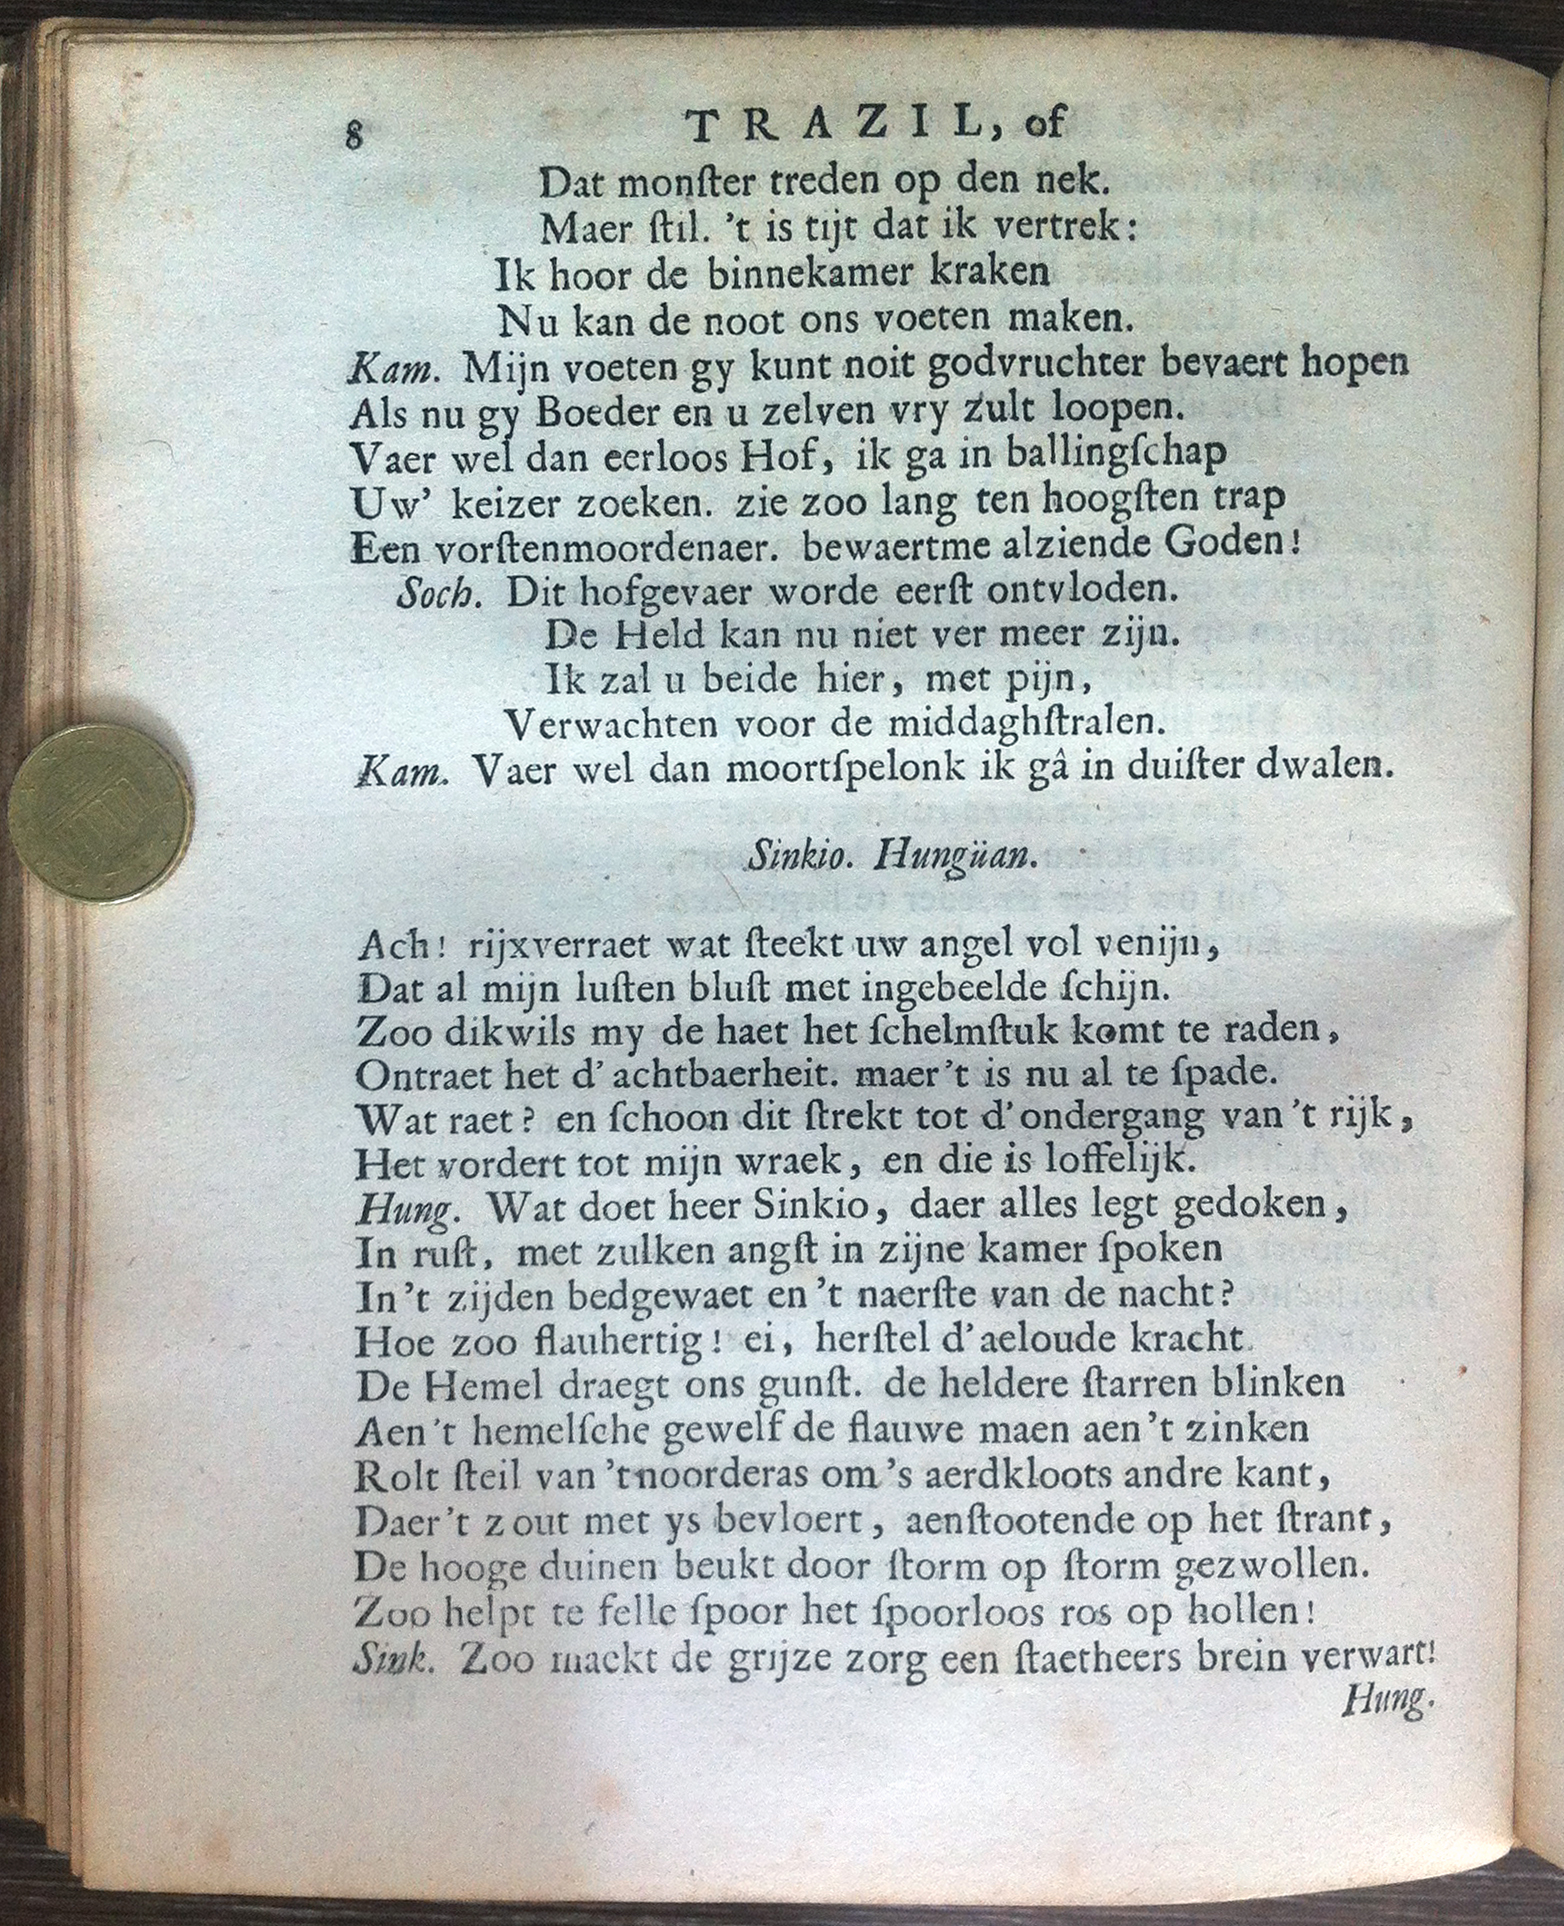 8 TRAZIL, of
Dat monſter treden op den nek.
Maer ſtil. 't is tijt dat ik vertrek:
Ik hoor de binnekamer kraken
Nu kan de noot ons voeten maken.
Kam. Mijn voeten gy kunt noit godvruchter bevaert hopen
Als nu gy Boeder en u zelven vry zult loopen.
Vaer wel dan eerloos Hof, ik ga in ballingſchap
Uw' keizer zoeken. zie zoo lang ten hoogſten trap
Een vorſtenmoordenaer. bewaertme alziende Goden!
Soch. Dit hofgevaer worde eerſt ontvloden.
De Held kan nu niet ver meer zijn.
Ik zal u beide hier, met pijn,
Verwachten voor de middaghſtralen.
Kam. Vaer wel dan moortſpelonk ik gâ in duiſter dwalen.
Sinkio. Hungüan.
Ach! rijxverraet wat ſteekt uw angel vol venijn,
Dat al mijn luſten bluſt met ingebeelde ſchijn.
Zoo dikwils my de haet het ſchelmſtuk komt te raden,
Ontraet het d' achtbaerheit. maer 't is nu al te ſpade.
Wat raet? en ſchoon dit ſtrekt tot d' ondergang van 't rijk,
Het vordert tot mijn wraek, en die is loffelijk.
Hung. Wat doet heer Sinkio, daer alles legt gedoken,
In ruſt, met zulken angſt in zijne kamer ſpoken
In 't zijden bedgewaet en 't naerſte van de nacht?
Hoe zoo flauhertig! ei, herſtel d' aeloude kracht.
De Hemel draegt ons gunſt. de heldere ſtarren blinken
Aen 't hemelſche gewelf de flauwe maen aen 't zinken
Rolt ſteil van 't noorderas om 's aerdkloots andre kant,
Daer 't zout met ys bevloert, aenſtootende op het ſtrant,
De hooge duinen beukt door ſtorm op ſtorm gezwollen.
Zoo helpt te felle ſpoor het ſpoorloos ros op hollen!
Sink. Zoo maekt de grijze zorg een ſtaetheers brein verwart!
Hung.